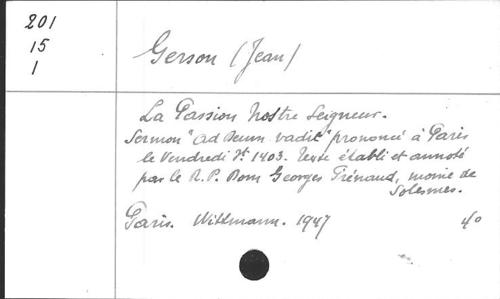 201
15
1
Gerson (Jean)
La Passion Nostre Seigneur.
Sermon "Ad Deum vadit" prononcé à Paris
le Vendredi St 1403. Texte établi et annoté
par le R.P. Dom Georges Frénaud, moine de
Solesmes.
Paris. Wittmann. 1947